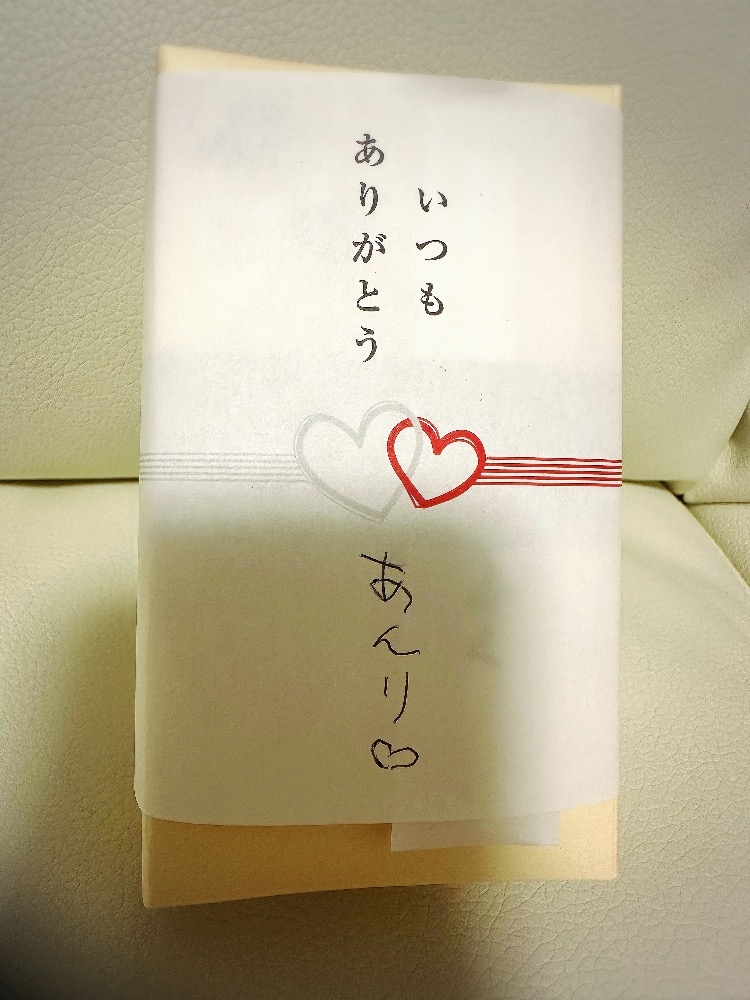 いつも
ありがとう
あんり♡